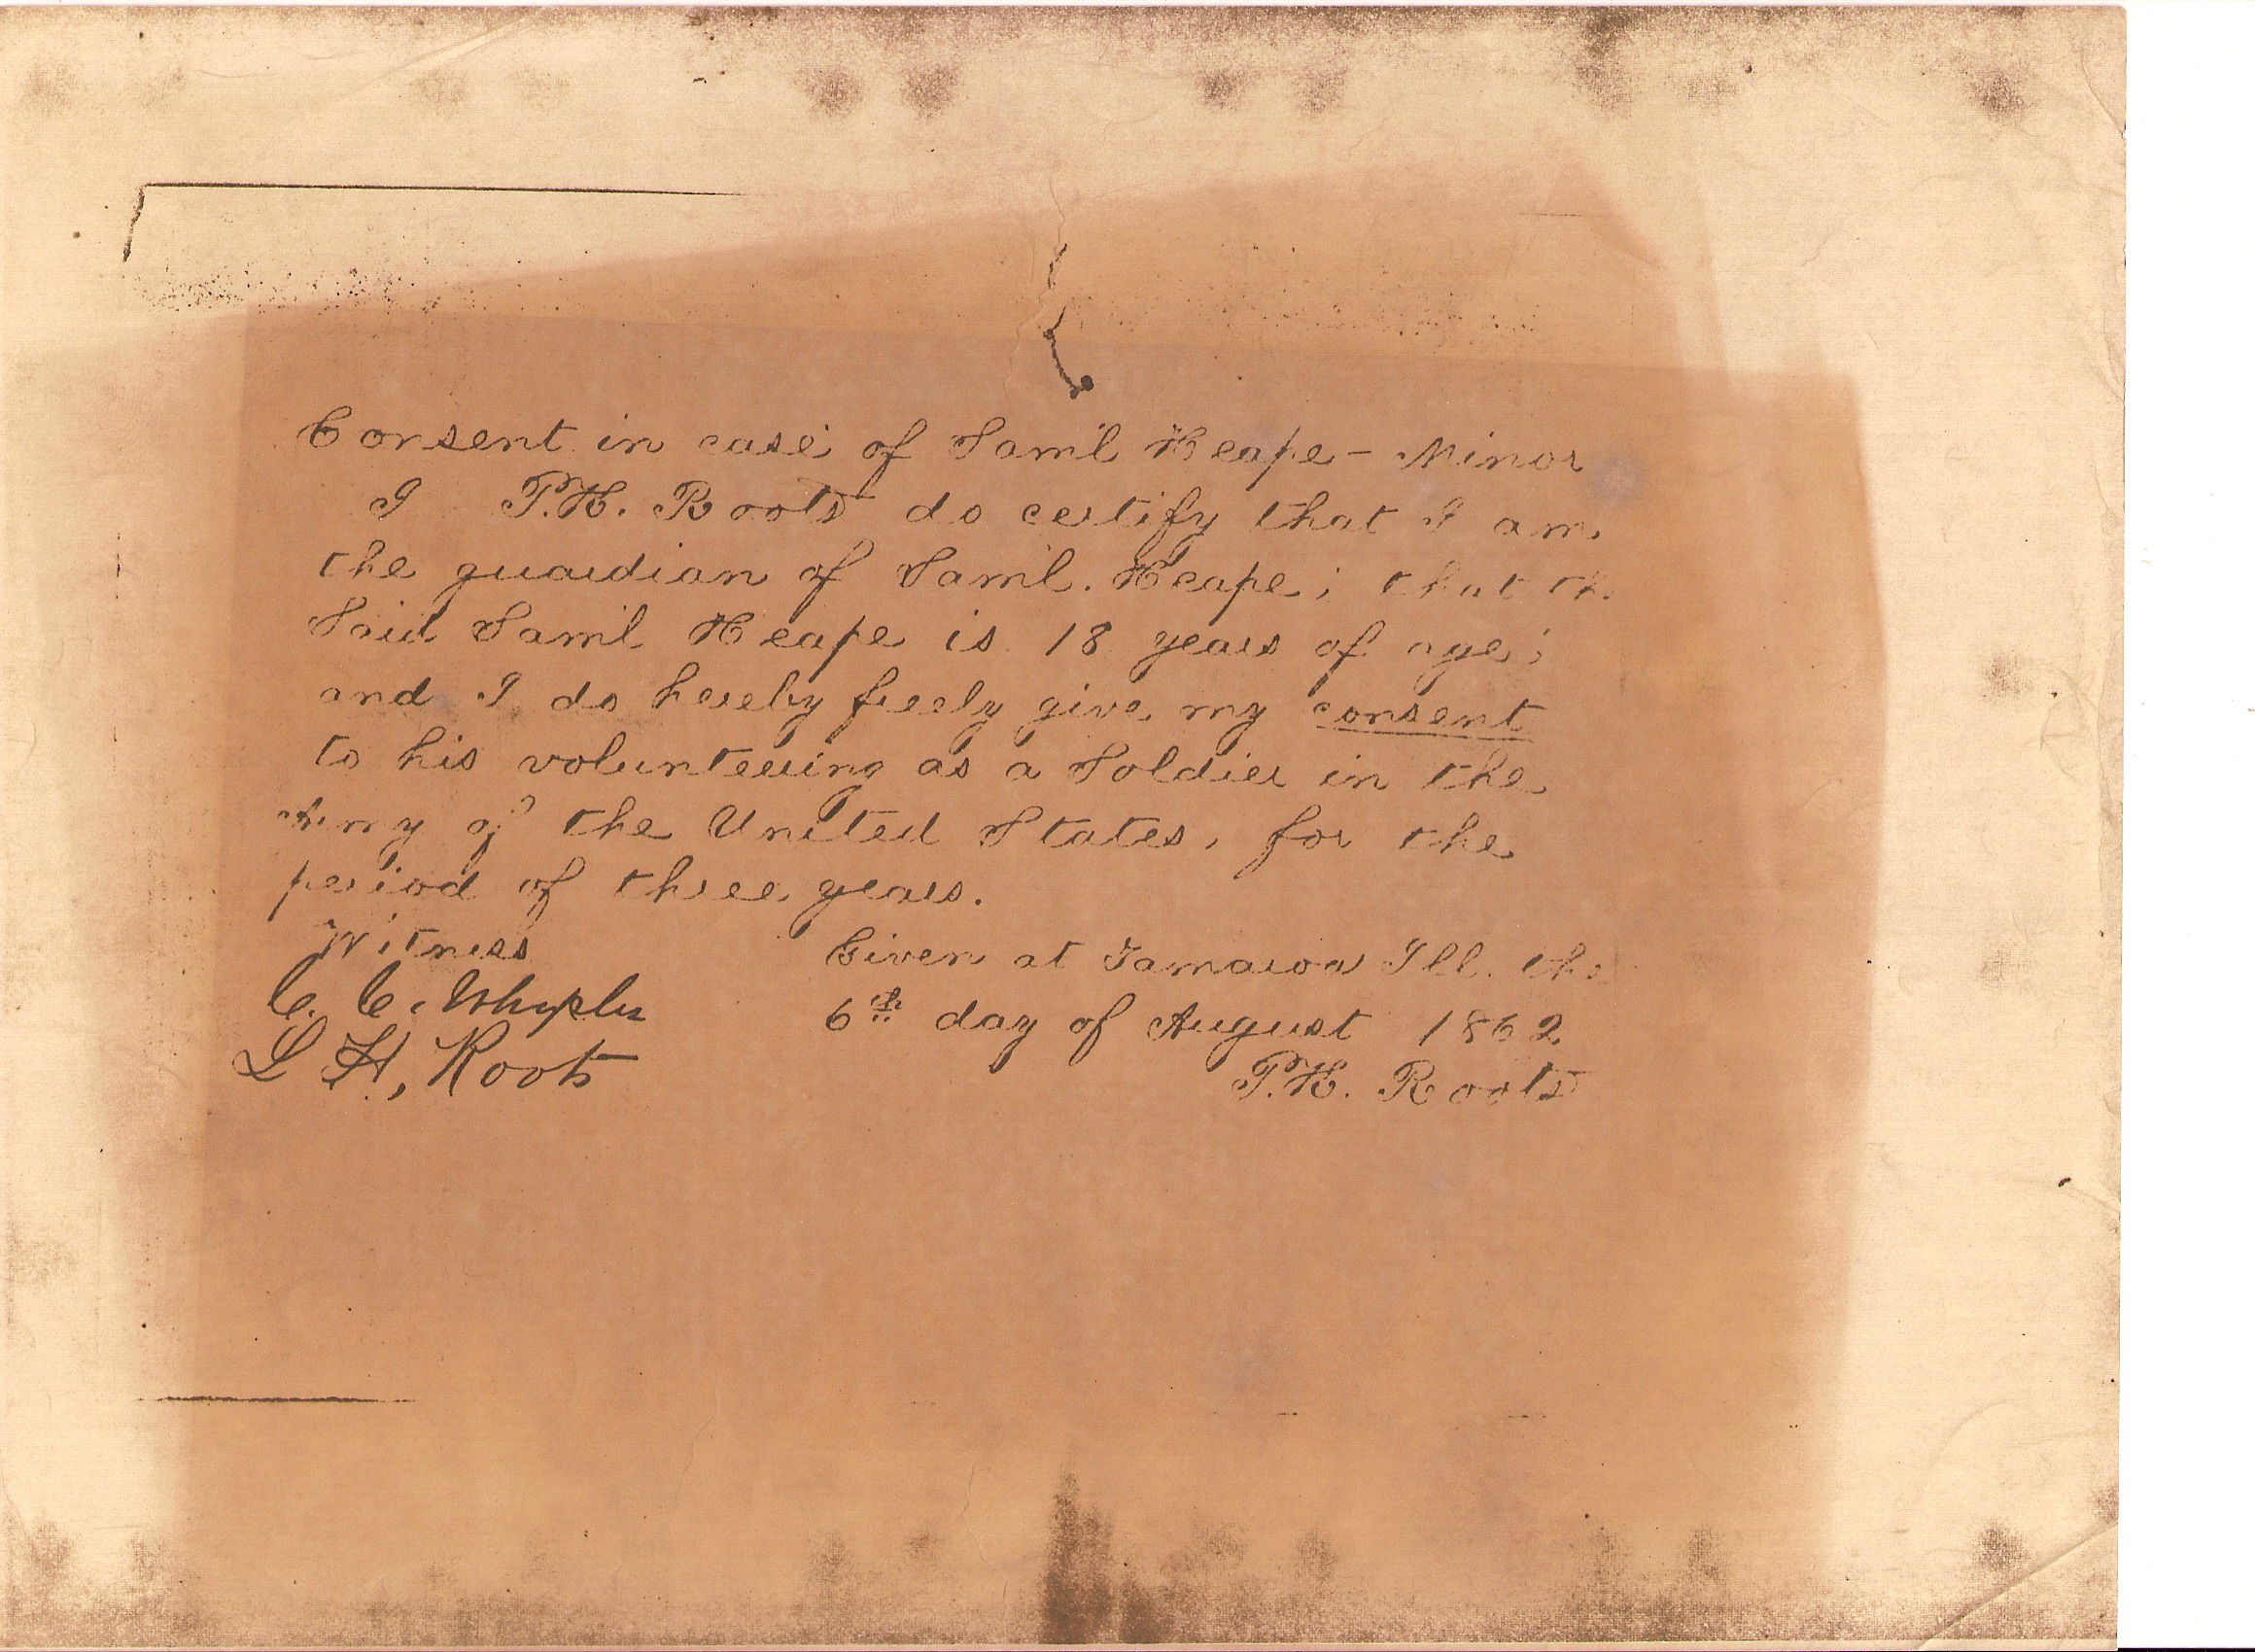 Consent in case of Saml Heape - Minor
I P.H. Roots do certify that I am
the guardian of Saml. Heape; that th
Said Saml Heape is 18 years of age;
and I do hereby freely give my consent
to his volunteering as a Soldier in the
Army of the United States, for the
period of three years.
Witness
C. C. Whipler
L H, Roots
Given at Tamaroa Ill. this
6th day of August 1862
P.H. Roots